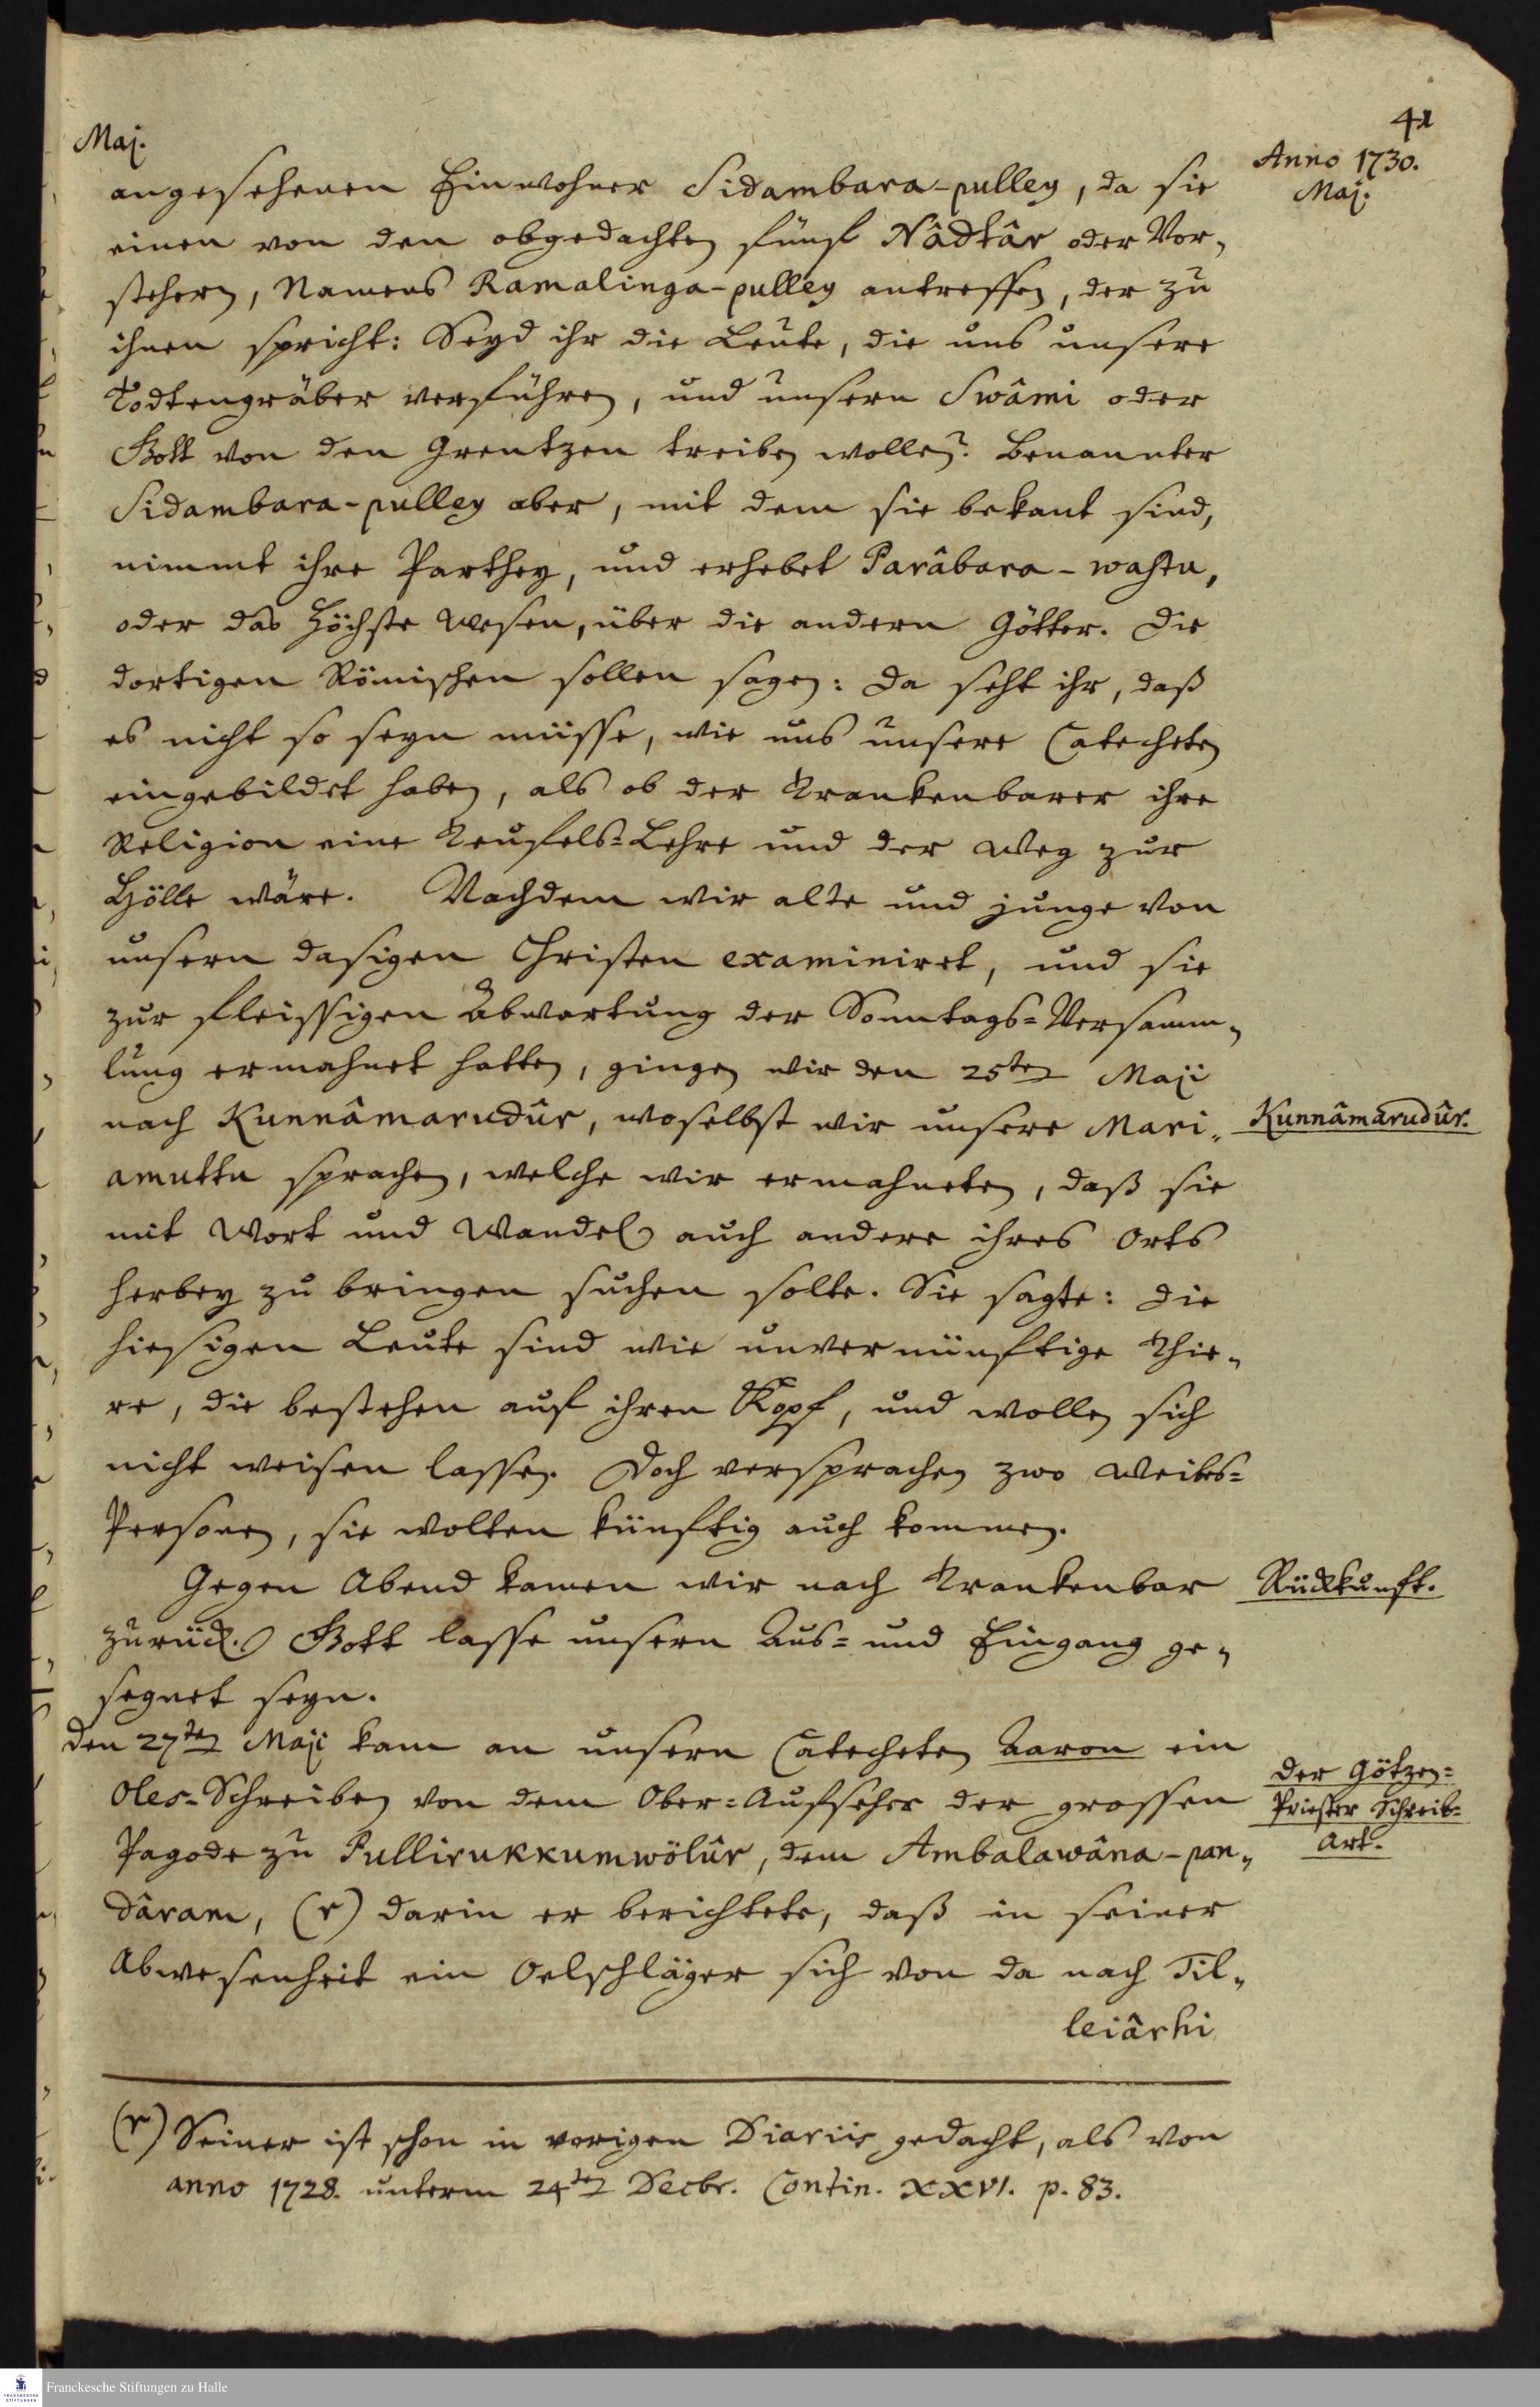 41
Maj.
Anno 1730.
Maj.
angesehenen Einwohner Sidambara-pulley, da sie
einen von den obgedachten fünf Nâdtâr oder Vor-
stehern, Namens Ramalinga-pulley antreffen, der zu
ihnen spricht: Seyd ihr die Leute, die uns unsere
Todtengräber verführen, und unsern Swâmi oder
Gott von den Grentzen treiben wollen? Benannter
Sidambara-pulley aber, mit dem sie bekant sind,
nimmt ihre Parthey, und erhebet Parâbara-wastu,
oder das höchste Wesen, über die andern Götter. Die
dortigen Römischen sollen sagen: Da seht ihr, daß
es nicht so seyn müsse, wie uns unsere Catecheten
eingebildet haben, als ob der Trankenbarer ihre
Religion eine Teufels-Lehre und der Weg zur
Hölle wäre. Nachdem wir alte und junge von
unsern dasigen Christen examiniret, und sie
zur fleissigen Abwartung der Sonntags-Versamm-
lung ermahnet hatten, gingen wir den 25ten Maji
nach Kunnâmarudûr, woselbst wir unsere Mari-
Kunnâmarudûr.
amuttu sprachen, welche wir ermahneten, daß sie
mit Wort und Wandel auch andere ihres Orts
herbey zu bringen suchen solte. Sie sagte: die
hiesigen Leute sind wie unvernünftige Thie-
re, die bestehen auf ihren Kopf, und wollen sich
nicht weisen lassen. Doch versprachen zwo Weibs-
Personen, sie wolten künftig auch kommen.
Gegen Abend kamen wir nach Trankenbar
Rückkunft.
zurück. Gott lasse unsern Aus- und Eingang ge-
segnet seyn.
den 27ten Maji kam an unsern Catecheten Aaron ein
Der Götzen-
Priester Schreib-
Art.
Oles-Schreiben von dem Ober-Aufseher der grossen
Pagode zu Pullirukkumwölûr, dem Ambalawâna-pan-
dâram, (r) darin er berichtete, daß in seiner
Abwesenheit ein Oelschläger sich von da nach Til-
leiârhi
(r) Seiner ist schon in vorigen Diariis gedacht, als von
anno 1728. unterm 24ten Decbr. Contin. XXVI. p. 83.
Franckesche Stiftungen zu Halle
FRANCKESCHE
STIFTUNGEN